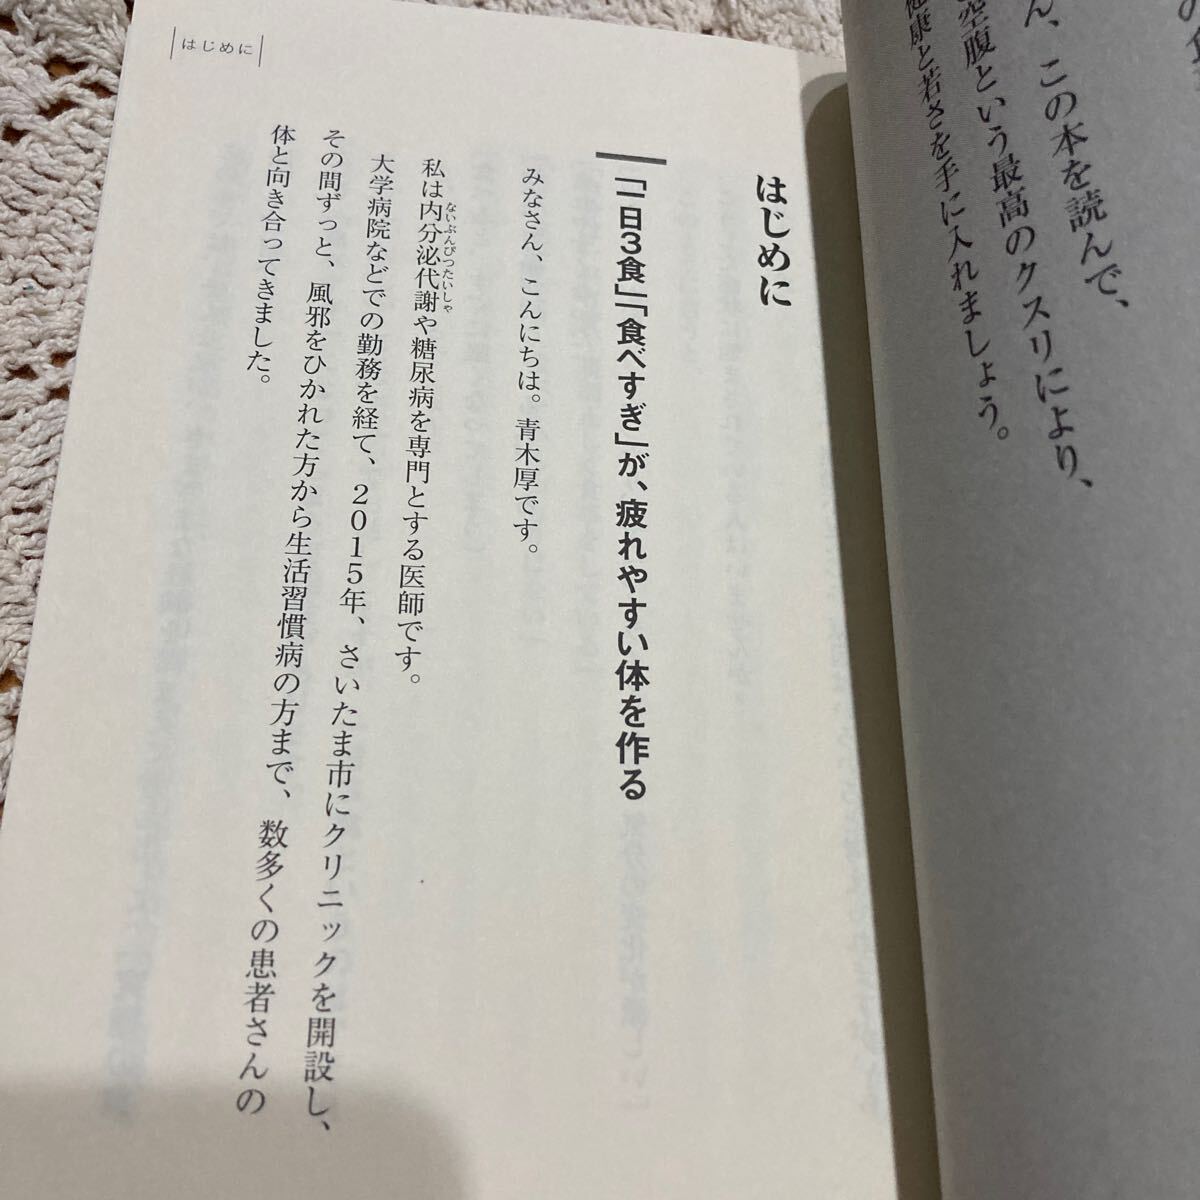 ん、この本を読んで、
空腹という最高のクスリにより、
健康と若さを手に入れましょう。
はじめに
はじめに
「一日3食」「食べすぎ」が、疲れやすい体を作る
みなさん、こんにちは。青木厚です。
私は内分泌代謝や糖尿病を専門とする医師です。
ないぶんぴつたいしゃ
大学病院などでの勤務を経て、2015年、さいたま市にクリニックを開設し、
その間ずっと、風邪をひかれた方から生活習慣病の方まで、数多くの患者さんの
体と向き合ってきました。